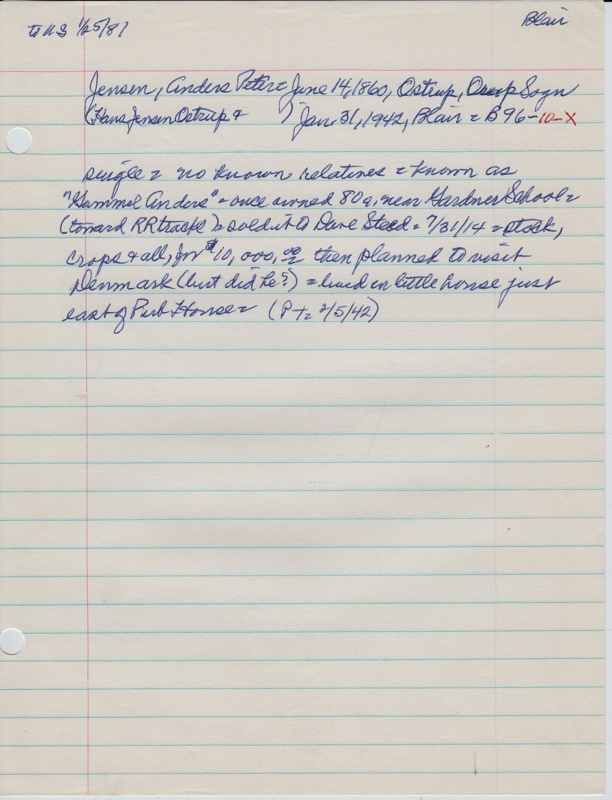 to US 1/25/81 Blair
Jensen, Anders Peter = June 14, 1860, Ostrup, Sogn
(Hans Jensen Ostrup + ) Jan. 31, 1942, Blair = B96-10-X
single = no known relatives = known as
"Gammel Anders" = once owned 80 a, near Gardner School =
(toward RR tracks) = sold it to Dave Steed = 7/31/14 = stock,
crops + all, for $10,000.00 = then planned to visit
Denmark (but did he?) = lived in little house just
east of Pub House = (PT = 2/5/42)